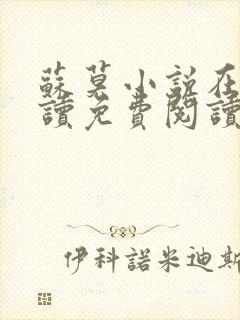 蘇莫小說在
讀免費閱讀
伊科諾米迪斯